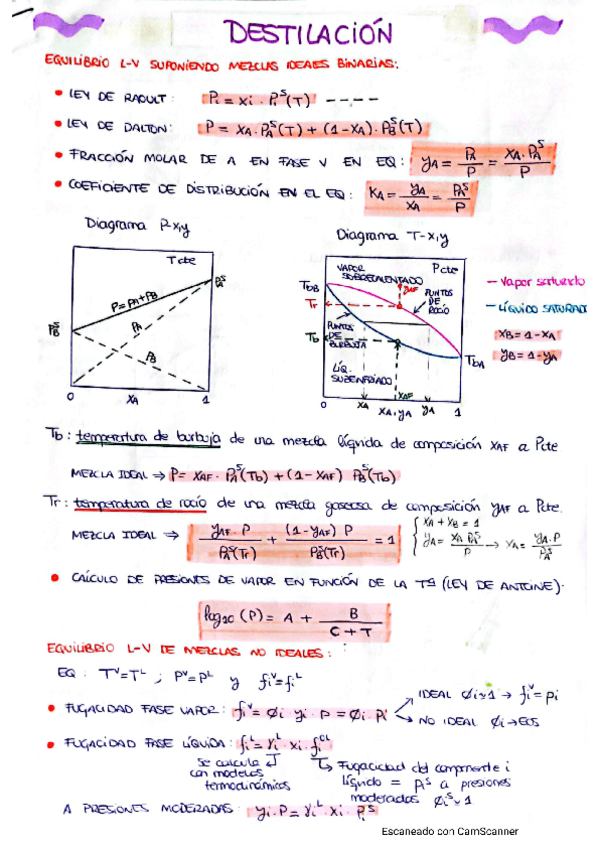 DESTILACIÓN
EQUILIBRIO L-V SUPONIENDO MEZCLAS IDEALES BINARIAS:
• LEY DE RAOULT: Pi = xi · Pi^S(T) ----
• LEY DE DALTON: P = XA·PA^S(T) + (1-XA)·PB^S(T)
• FRACCIÓN MOLAR DE A EN FASE V EN EQ: yA = PA/P = XA·PA^S/P
• COEFICIENTE DE DISTRIBUCIÓN EN EL EQ: KA = yA/XA = PA^S/P
Diagrama P-x,y
Tcte
PA^S
P=PA+PB
PA
PB^S
PB
0 XA 1
Diagrama T-x,y
Pcte
VAPOR SOBRECALENTADO
TbB
yAF
Tr
PUNTOS DE ROCÍO
Tb
PUNTOS DE BURBUJA
TbA
LÍQ. SUBENFRIADO
XAF
0 XA XA,yA yA 1
— Vapor saturado
— LÍQUIDO SATURADO
XB = 1-XA
yB = 1-yA
Tb: temperatura de burbuja de una mezcla líquida de composición XAF a Pcte
MEZCLA IDEAL → P = XAF · PA^S(Tb) + (1-XAF) PB^S(Tb)
Tr: temperatura de rocío de una mezcla gaseosa de composición yAF a Pcte.
MEZCLA IDEAL ⇒ yAF·P/PA^S(Tr) + (1-yAF) P/PB^S(Tr) = 1
{ XA + XB = 1
yA = XA PA^S/P → XA = yA·P/PA^S
• CÁLCULO DE PRESIONES DE VAPOR EN FUNCIÓN DE LA Tª (LEY DE ANTOINE):
log10 (P) = A + B/(C+T)
EQUILIBRIO L-V DE MEZCLAS NO IDEALES:
EQ: T^V=T^L ; P^V=P^L y fi^V=fi^L
• FUGACIDAD FASE VAPOR: fi^V = Øi yi·P = Øi·Pi
IDEAL Øi≈1 → fi^V = Pi
NO IDEAL Øi → EOS
• FUGACIDAD FASE LÍQUIDA: fi^L = γi^L xi·fi^OL
se calcula con modelos termodinámicos
Fugacidad del componente i líquido = P^S a presiones moderadas Øi^S≈1
A PRESIONES MODERADAS: yi·P = γi^L · xi · Pi^S
Escaneado con CamScanner